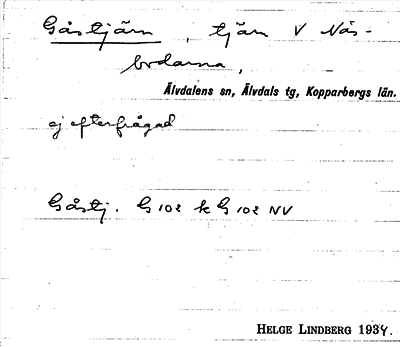 Gåstjärn, tjärn V Nås-
bodarna,
Älvdalens sn, Älvdals tg, Kopparbergs län.
ej efterfrågad
Gåstj. G 102 k G 102 NV
HELGE LINDBERG 1934.